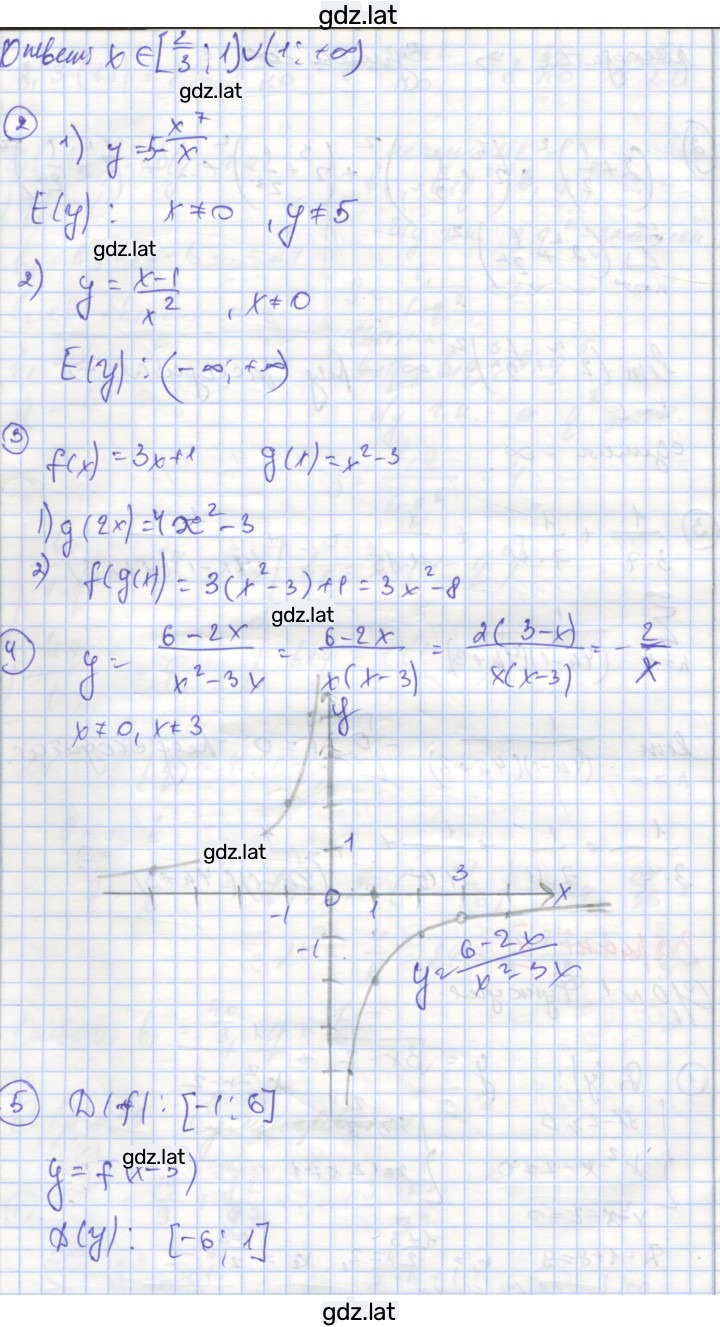 gdz.lat
Ответ: x ∈ [2/3; 1) ∪ (1; +∞)
gdz.lat
② 1) y = 5 - x^7/x
E(y): x ≠ 0, y ≠ 5
gdz.lat
2) y = (x-1)/x^2, x ≠ 0
E(y): (-∞; +∞)
③ f(x) = 3x+1 g(x) = x^2-3
1) g(2x) = 4x^2-3
2) f(g(x)) = 3(x^2-3)+1 = 3x^2-8
gdz.lat
④ y = (6-2x)/(x^2-3x) = (6-2x)/(x(x-3)) = 2(3-x)/(x(x-3)) = -2/x
x ≠ 0, x ≠ 3
y
1
gdz.lat
3
x
-1 0 1
-1
y = (6-2x)/(x^2-3x)
⑤ D(f): [-1; 6]
gdz.lat
y = f(x-5)
D(y): [-6; 1]
gdz.lat